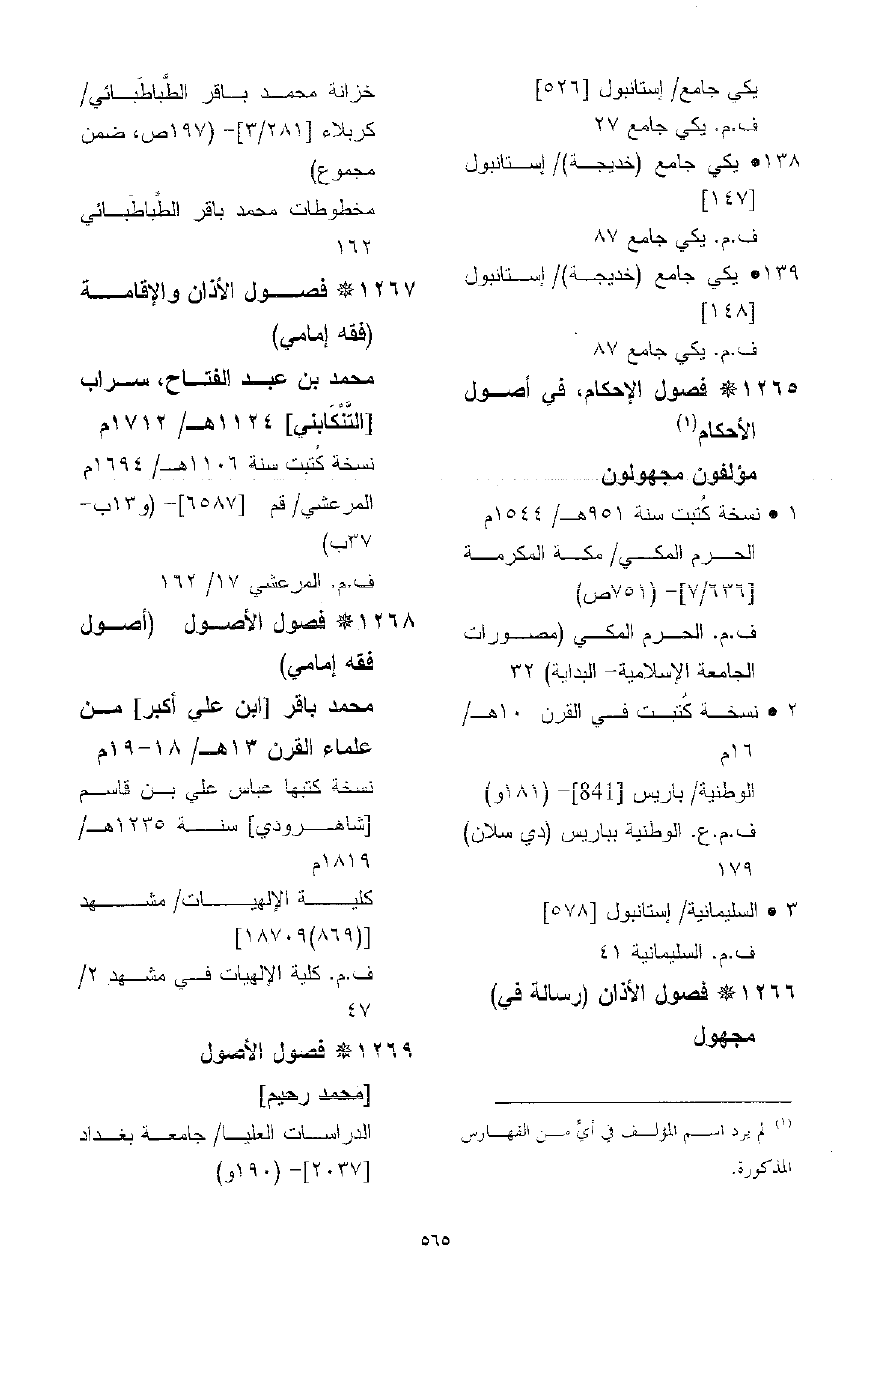 يكي جامع/ إستانبول [٥٢٦]
ف.م. يكي جامع ٢٧
١٣٨● يكي جامع (خديجة)/ إستانبول
[١٤٧]
ف.م. يكي جامع ٨٧
١٣٩● يكي جامع (خديجة)/ إستانبول
[١٤٨]
ف.م. يكي جامع ٨٧
١٢٦٥* فصول الإحكام، في أصول
الأحكام(١)
مؤلفون مجهولون
١ ● نسخة كُتبت سنة ٩٥١هـ/ ١٥٤٤م
الحرم المكي/ مكة المكرمة
[٧/٦٣٦]- (٧٥١ص)
ف.م. الحرم المكي (مصورات
الجامعة الإسلامية- البداية) ٣٢
٢ ● نسخة كُتبت في القرن ١٠هـ/
١٦م
الوطنية/ باريس [841]- (١٨١و)
ف.م.ع. الوطنية بباريس (دي سلان)
١٧٩
٣ ● السليمانية/ إستانبول [٥٧٨]
ف.م. السليمانية ٤١
١٢٦٦* فصول الأذان (رسالة في)
مجهول
(١) لم يرد اسم المؤلف في أيٍّ من الفهارس
المذكورة.
خزانة محمد باقر الطَّباطَبائي/
كربلاء [٣/٢٨١]- (١٩٧ص، ضمن
مجموع)
مخطوطات محمد باقر الطَّباطَبائي
١٦٢
١٢٦٧* فصول الأذان والإقامة
(فقه إمامي)
محمد بن عبد الفتاح، سراب
[التُّنَكَابني] ١١٢٤هـ/ ١٧١٢م
نسخة كُتبت سنة ١١٠٦هـ/ ١٦٩٤م
المرعشي/ قم [٦٥٨٧]- (و١٣ب-
٣٧ب)
ف.م. المرعشي ١٧/ ١٦٢
١٢٦٨* فصول الأصول (أصول
فقه إمامي)
محمد باقر [ابن علي أكبر] من
علماء القرن ١٣هـ/ ١٨-١٩م
نسخة كتبها عباس علي بن قاسم
[شاهرودي] سنة ١٢٣٥هـ/
١٨١٩م
كلية الإلهيات/ مشهد
[(٨٦٩)١٨٧٠٩]
ف.م. كلية الإلهيات في مشهد ٢/
٤٧
١٢٦٩* فصول الأصول
[محمد رحيم]
الدراسات العليا/ جامعة بغداد
[٢٠٣٧]- (١٩٠و)
٥٦٥